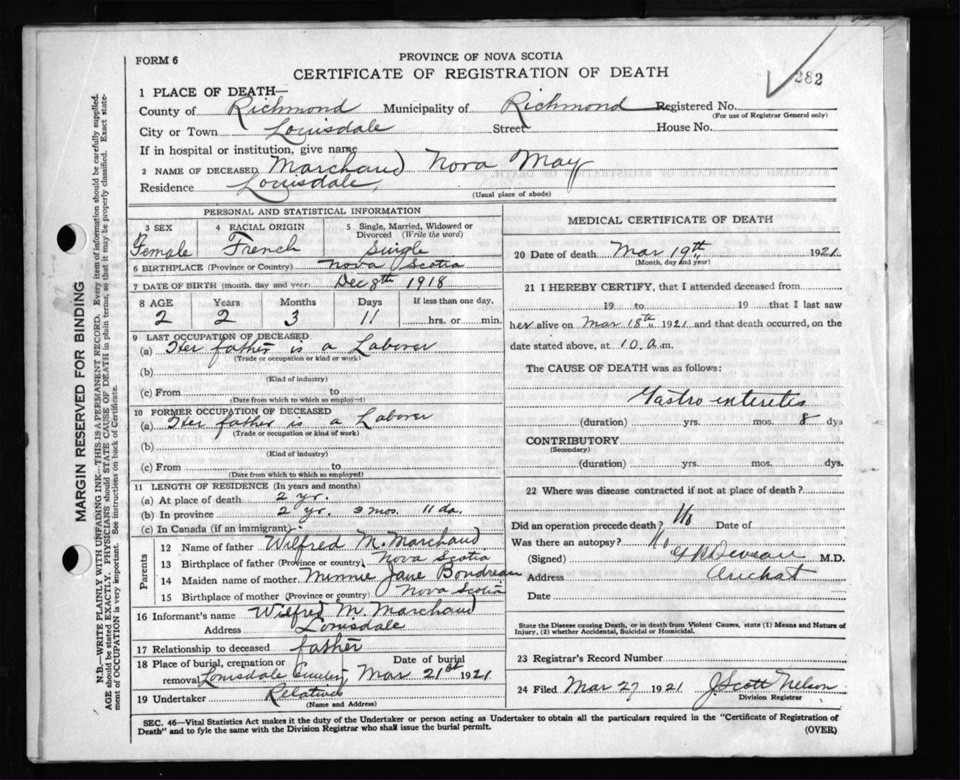 FORM 6
PROVINCE OF NOVA SCOTIA
CERTIFICATE OF REGISTRATION OF DEATH
282
1 PLACE OF DEATH—
County of Richmond Municipality of Richmond Registered No.
(For use of Registrar General only)
City or Town Louisdale Street House No.
If in hospital or institution, give name
2 NAME OF DECEASED Marchand Nora May
Residence Louisdale
(Usual place of abode)
PERSONAL AND STATISTICAL INFORMATION
3 SEX Female
4 RACIAL ORIGIN French
5 Single, Married, Widowed or Divorced (Write the word) Single
6 BIRTHPLACE (Province or Country) Nova Scotia
7 DATE OF BIRTH (month, day and year) Dec 8th 1918
8 AGE Years Months Days If less than one day,
2 2 3 11 hrs. or min.
9 LAST OCCUPATION OF DECEASED
(a) Her father is a Laborer
(Trade or occupation or kind or work)
(b)
(Kind of industry)
(c) From to
(Date from which to which so employed)
10 FORMER OCCUPATION OF DECEASED
(a) Her father is a Laborer
(Trade or occupation or kind of work)
(b)
(Kind of industry)
(c) From to
(Date from which to which so employed)
11 LENGTH OF RESIDENCE (In years and months)
(a) At place of death 2 yr.
(b) In province 2 yr. 3 mos. 11 da.
(c) In Canada (if an immigrant)
Parents
12 Name of father Wilfred M. Marchand
13 Birthplace of father (Province or country) Nova Scotia
14 Maiden name of mother Minnie Jane Boudreau
15 Birthplace of mother (Province or country) Nova Scotia
16 Informant's name Wilfred M. Marchand
Address Louisdale
17 Relationship to deceased father
18 Place of burial, cremation or removal Louisdale Date of burial Mar 21st 1921
19 Undertaker Relatives
(Name and Address)
MEDICAL CERTIFICATE OF DEATH
20 Date of death Mar 19th 1921
(Month, day and year)
21 I HEREBY CERTIFY, that I attended deceased from
19 to 19 that I last saw
her alive on Mar 18th 1921 and that death occurred, on the
date stated above, at 10 a.m.
The CAUSE OF DEATH was as follows:
Gastro interetis
(duration) yrs. mos. 8 dys
CONTRIBUTORY
(Secondary)
(duration) yrs. mos. dys.
22 Where was disease contracted if not at place of death?
Did an operation precede death? No Date of
Was there an autopsy? No
(Signed) M.D.
Address Arichat
Date
State the Disease causing Death, or in death from Violent Causes, state (1) Means and Nature of
Injury, (2) whether Accidental, Suicidal or Homicidal.
23 Registrar's Record Number
24 Filed Mar 27 1921 J Scott Nelson
Division Registrar
SEC. 46—Vital Statistics Act makes it the duty of the Undertaker or person acting as Undertaker to obtain all the particulars required in the "Certificate of Registration of
Death" and to fyle the same with the Division Registrar who shall issue the burial permit.
(OVER)
MARGIN RESERVED FOR BINDING
N.B.—WRITE PLAINLY WITH UNFADING INK—THIS IS A PERMANENT RECORD. Every item of information should be carefully supplied.
AGE should be stated EXACTLY. PHYSICIANS should STATE CAUSE OF DEATH in plain terms, so that it may be properly classified. Exact state-
ment of OCCUPATION is very important. See instructions on back of Certificate.